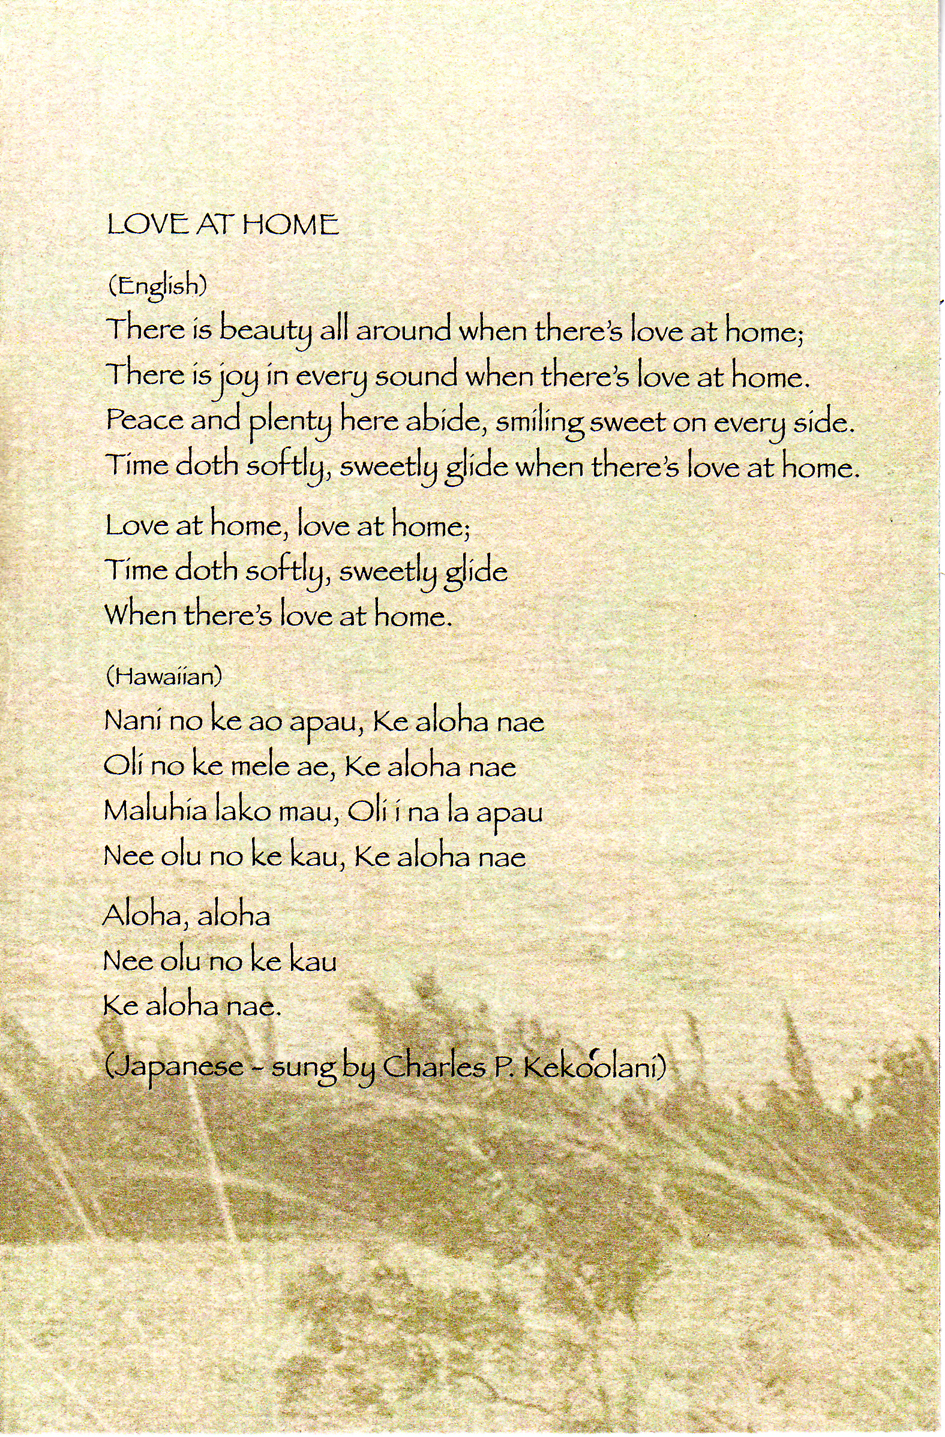 LOVE AT HOME
(English)
There is beauty all around when there's love at home;
There is joy in every sound when there's love at home.
Peace and plenty here abide, smiling sweet on every side.
Time doth softly, sweetly glide when there's love at home.
Love at home, love at home;
Time doth softly, sweetly glide
When there's love at home.
(Hawaiian)
Nani no ke ao apau, Ke aloha nae
Oli no ke mele ae, Ke aloha nae
Maluhia lako mau, Oli i na la apau
Nee olu no ke kau, Ke aloha nae
Aloha, aloha
Nee olu no ke kau
Ke aloha nae.
(Japanese - sung by Charles P. Keko'olani)